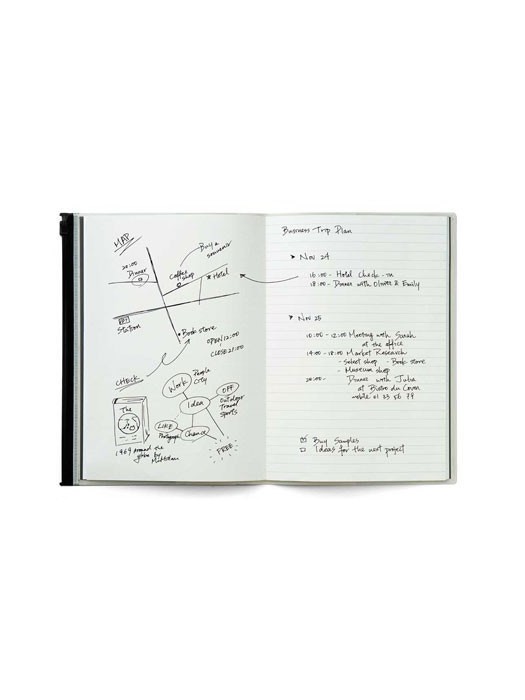 MAP
Buy a
souvenir
20:00
Dinner
Coffee
shop
Hotel
Station
Book store
OPEN 12:00
CLOSE 21:00
CHECK
People
City
Work
OFF
Idea
Outdoor
Travel
sports
The
LIKE
Photograph
Chance
FREE
1969 around the
globe by
Business Trip Plan
Nov 24
16:00 - Hotel Check-in
18:00 - Dinner with Oliver & Emily
Nov 25
10:00 - 12:00 Meeting with Sarah
at the office
14:00 - 18:00 Market Research
- Select shop - Book store
- Museum shop
20:00 - Dinner with Julia
at Bistro du Coron
mobile 01 33 56 79
Buy Samples
Ideas for the next project